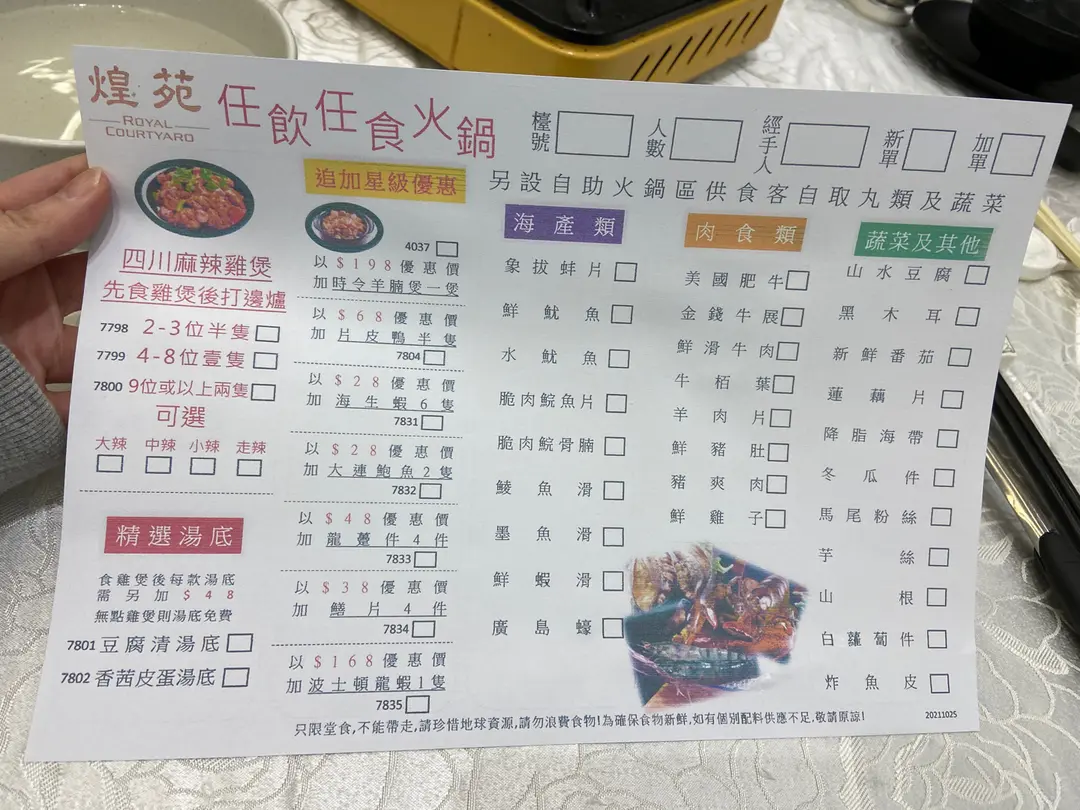 煌苑
ROYAL
COURTYARD
任飲任食火鍋
檯號
人數
經手人
新單
加單
另設自助火鍋區供食客自取丸類及蔬菜
四川麻辣雞煲
先食雞煲後打邊爐
7798 2-3位半隻
7799 4-8位壹隻
7800 9位或以上兩隻
可選
大辣 中辣 小辣 走辣
精選湯底
食雞煲後每款湯底
需另加$48
無點雞煲則湯底免費
7801 豆腐清湯底
7802 香茜皮蛋湯底
追加星級優惠
4037
以$198優惠價
加時令羊腩煲一煲
以$68優惠價
加片皮鴨半隻
7804
以$28優惠價
加海生蝦6隻
7831
以$28優惠價
加大連鮑魚2隻
7832
以$48優惠價
加龍躉件4件
7833
以$38優惠價
加鱔片4件
7834
以$168優惠價
加波士頓龍蝦1隻
7835
海產類
象拔蚌片
鮮魷魚
水魷魚
脆肉鯇魚片
脆肉鯇骨腩
鯪魚滑
墨魚滑
鮮蝦滑
廣島蠔
肉食類
美國肥牛
金錢牛展
鮮滑牛肉
牛栢葉
羊肉片
鮮豬肚
豬爽肉
鮮雞子
蔬菜及其他
山水豆腐
黑木耳
新鮮番茄
蓮藕片
降脂海帶
冬瓜件
馬尾粉絲
芋絲
山根
白蘿蔔件
炸魚皮
只限堂食,不能帶走,請珍惜地球資源,請勿浪費食物!為確保食物新鮮,如有個別配料供應不足,敬請原諒!
20211025